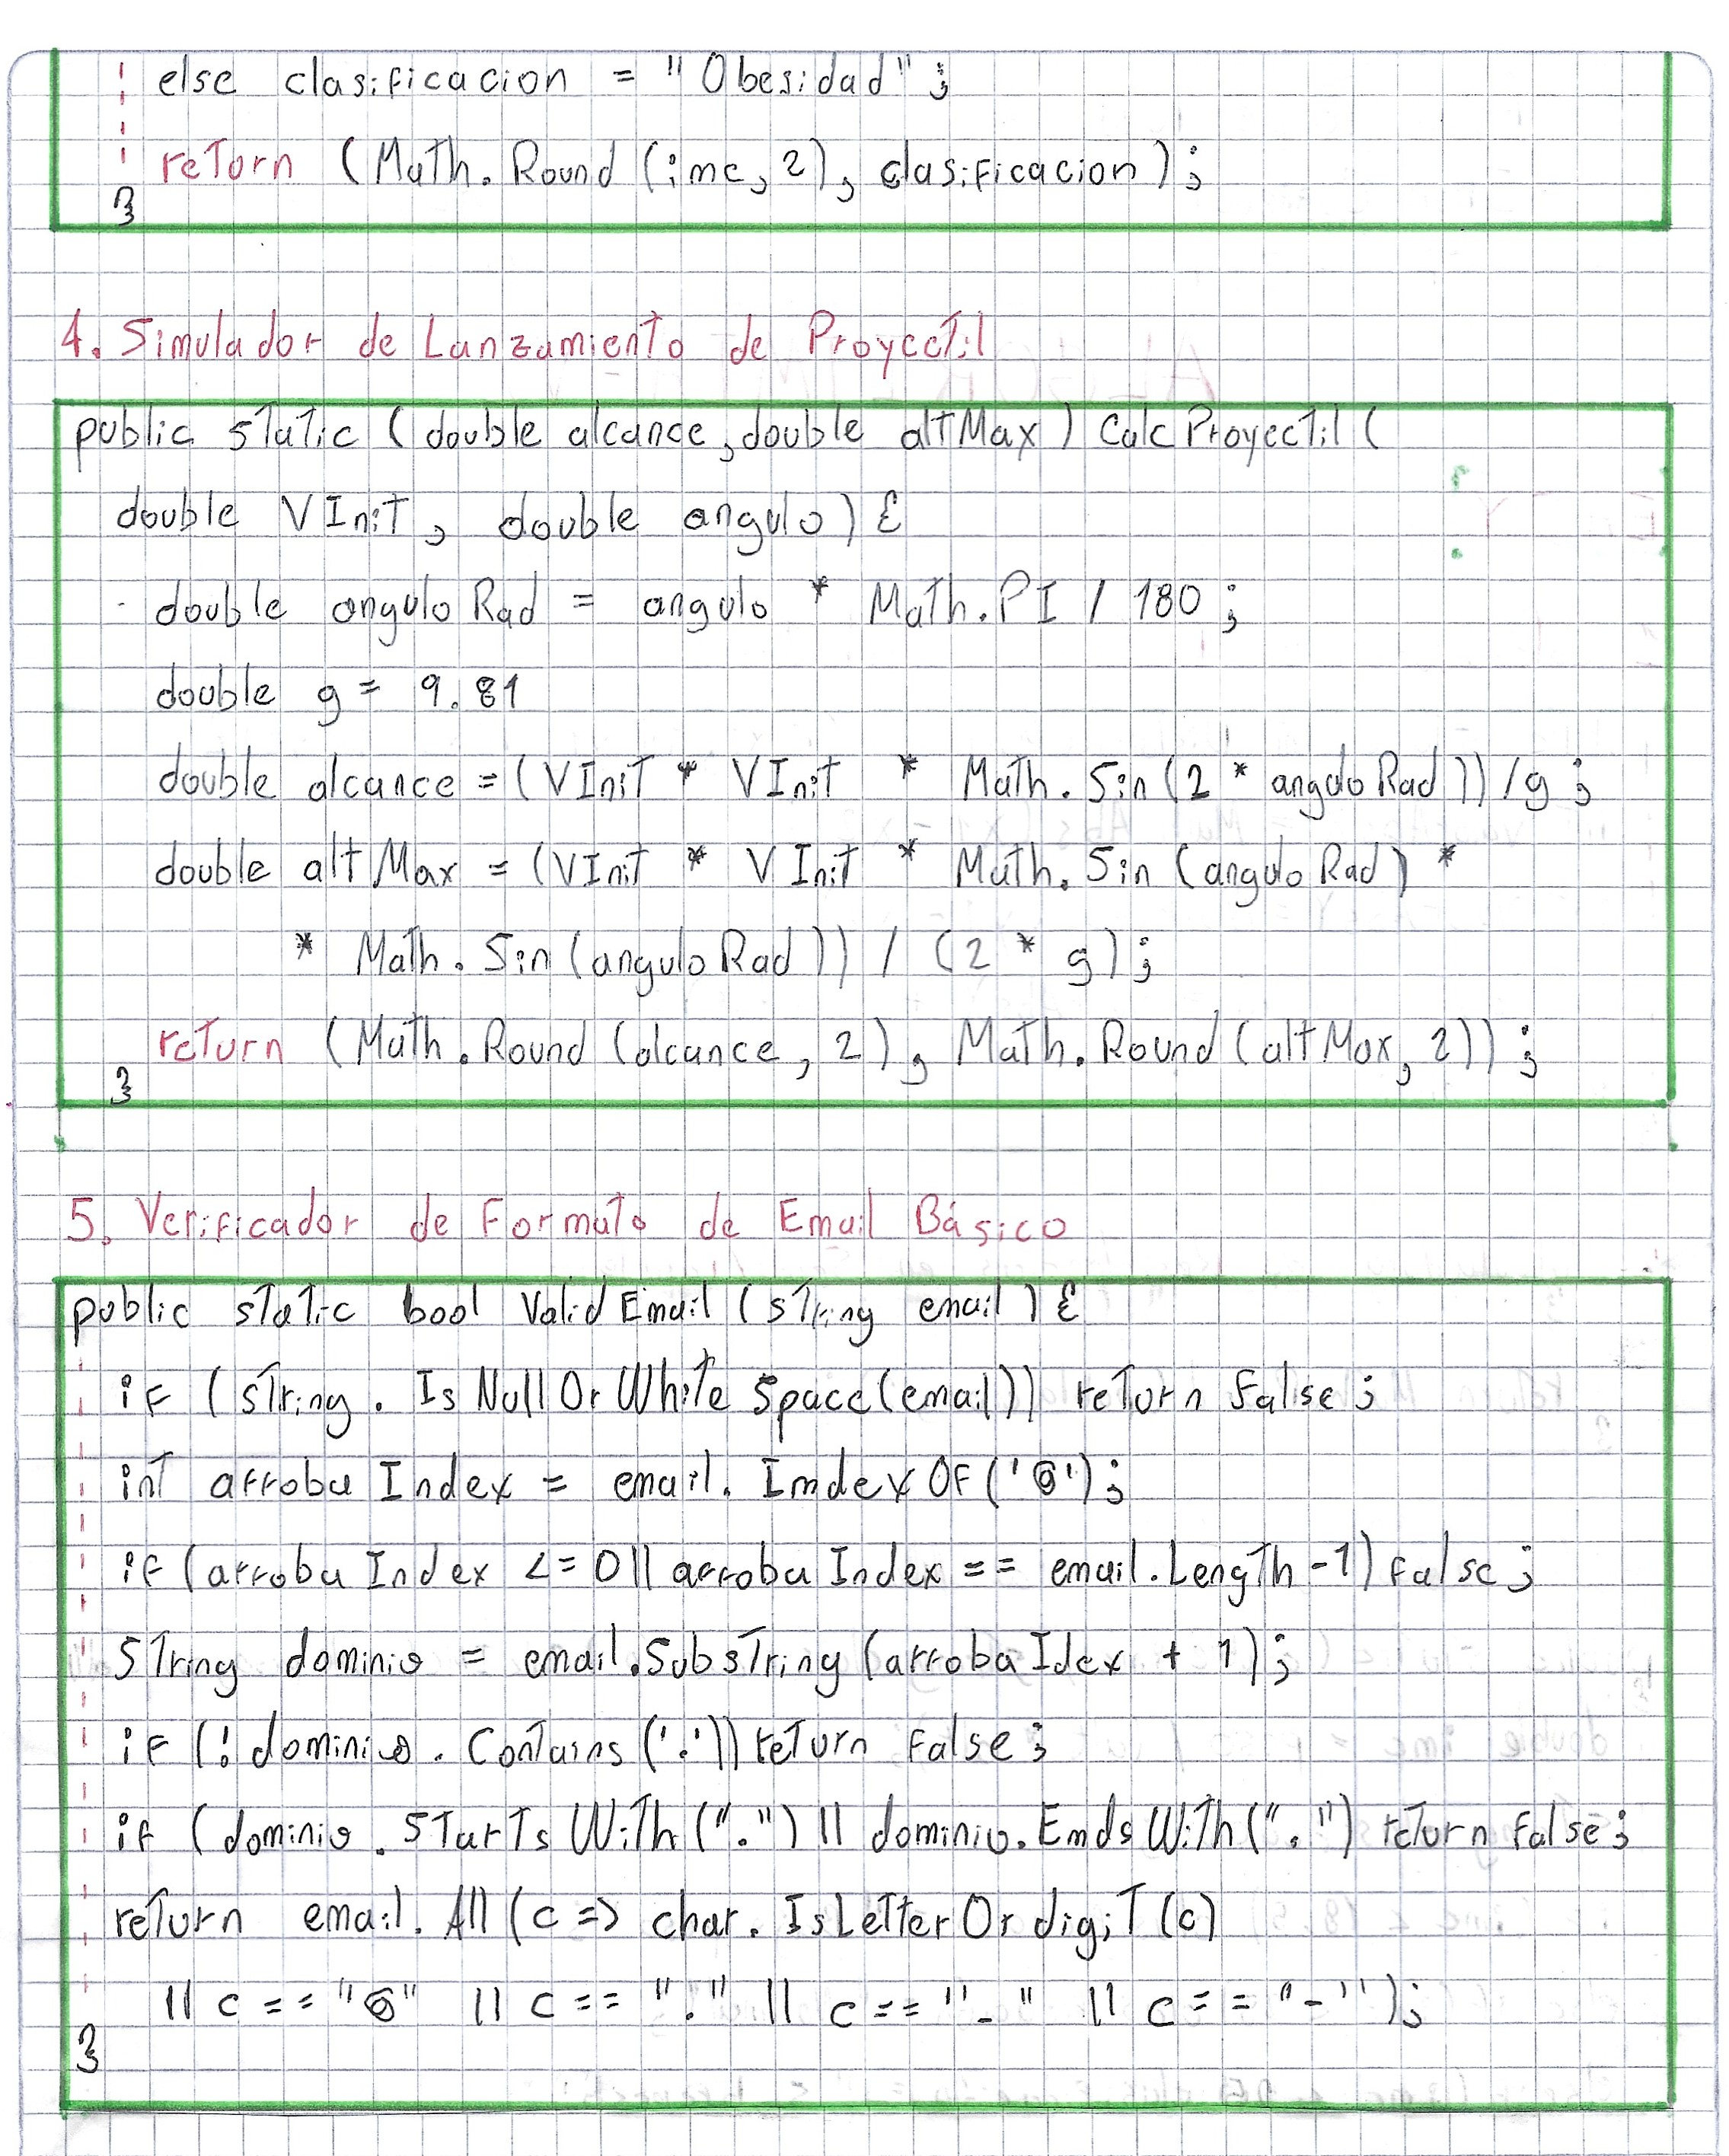 else clasificacion = "Obesidad";
return (Math.Round(imc, 2), clasificacion);
}
4. Simulador de Lanzamiento de Proyectil
public static (double alcance, double altMax) CalcProyectil(
double VInit, double angulo) {
double anguloRad = angulo * Math.PI / 180;
double g = 9.81
double alcance = (VInit * VInit * Math.Sin(2 * anguloRad)) / g;
double altMax = (VInit * VInit * Math.Sin(anguloRad) *
* Math.Sin(anguloRad)) / (2 * g);
return (Math.Round(alcance, 2), Math.Round(altMax, 2));
}
5. Verificador de Formato de Email Básico
public static bool ValidEmail (string email) {
if (string.IsNullOrWhiteSpace(email)) return false;
int arrobaIndex = email.ImdexOf('@');
if (arrobaIndex <= 0 || arrobaIndex == email.Length - 1) false;
String dominio = email.Substring (arrobaIdex + 1);
if (!dominio.Contains('.')) return false;
if (dominio.StartsWith(".") || dominio.EmdsWith(".") return false;
return email.All (c => char.IsLetterOrdigit (c)
|| c == "@" || c == "." || c == "_" || c == "-");
}